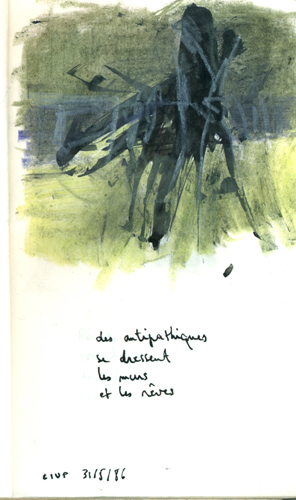 des antipathiques
se dressent
les murs
et les rêves
CIUP 31/5/86